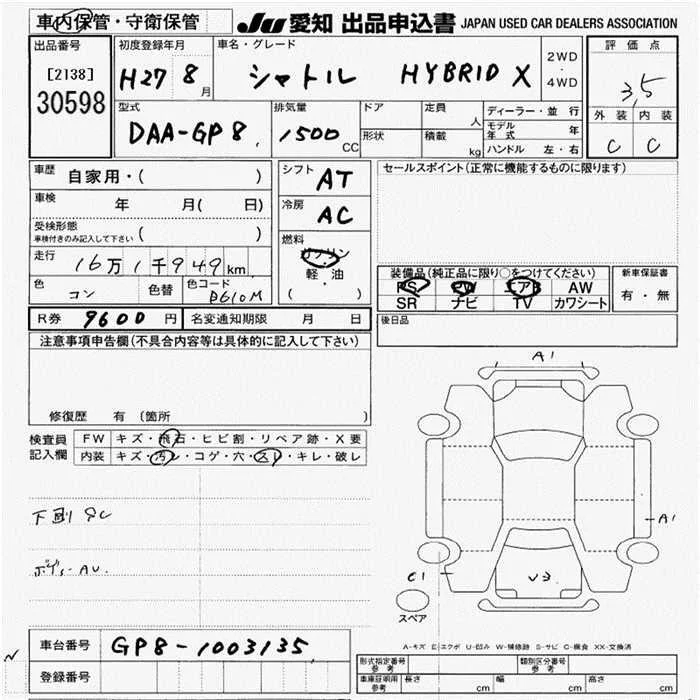 車内保管・守衛保管 JU 愛知 出品申込書 JAPAN USED CAR DEALERS ASSOCIATION
出品番号 [2138] 30598
初度登録年月 H27 8月
車名・グレード シャトル HYBRID X
2WD・4WD
評価点 3,5
外装 C 内装 C
型式 DAA-GP8
排気量 1500 CC
ドア 形状
定員 人 積載 kg
ディーラー・並行
モデル年式 年
ハンドル 左・右
車歴 自家用・( )
車検 年 月( 日)
受検形態 車検付きのみ記入して下さい ( )
走行 16万1千949km
色 コン 色替 色コード B610M
シフト AT
冷房 AC
燃料 ガソリン・軽・油 ( )
セールスポイント(正常に機能するものに限ります)
装備品(純正品に限り○をつけてください)
PS PW エアB AW
SR ナビ TV カワシート
新車保証書 有・無
後日品
R券 9600 円 名変通知期限 月 日
注意事項申告欄(不具合内容等は具体的に記入して下さい)
修復歴 有 (箇所 )
検査員記入欄
FW キズ・飛石・ヒビ割・リペア跡・X要
内装 キズ・汚レ・コゲ・穴・スレ・キレ・破レ
A1
A1
C1
U3
スペア
A-キズ E-エクボ U-凹み W-補修跡 S-サビ C-腐食 XX-交換済
車台番号 GP8-1003135
登録番号
形式指定番号 参考 類別区分番号 参考
車庫証明用 参考 長さ cm 幅 cm 高さ cm